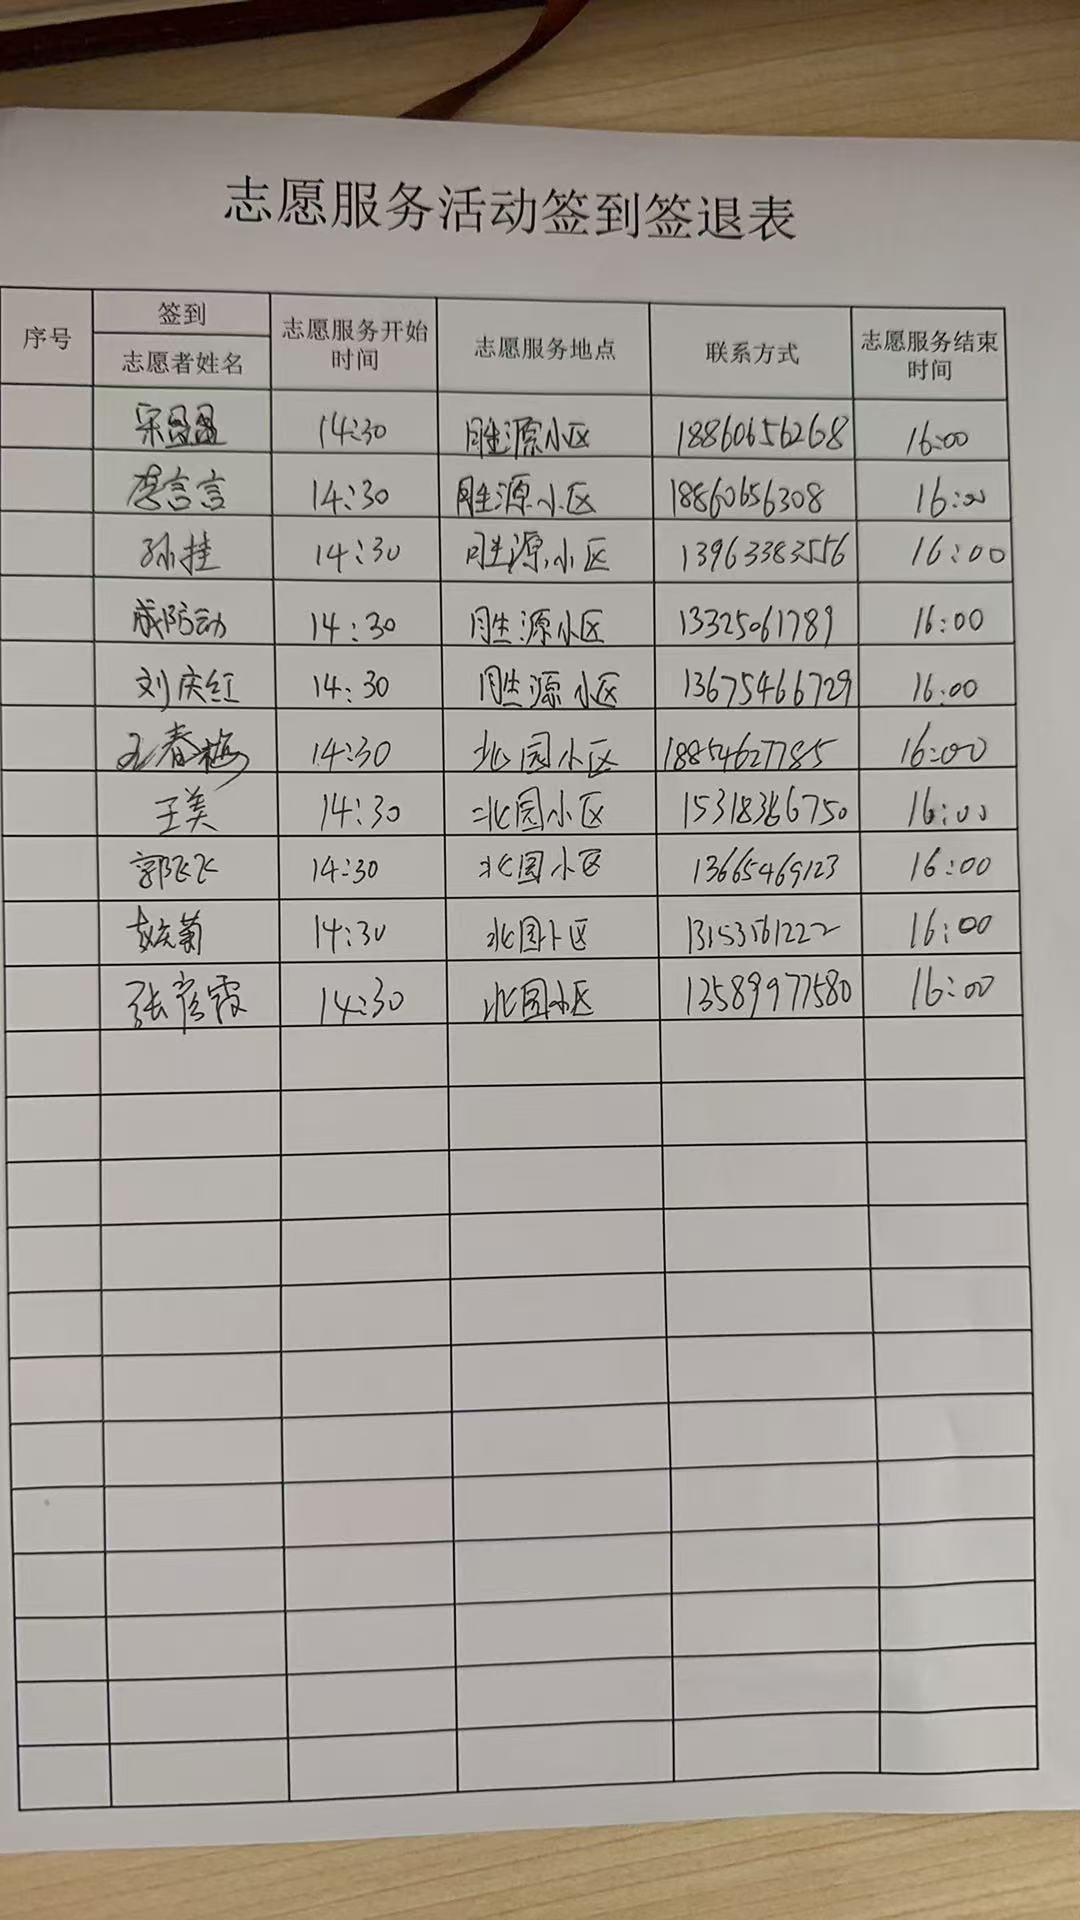 志愿服务活动签到签退表
序号 签到 志愿者姓名 志愿服务开始时间 志愿服务地点 联系方式 志愿服务结束时间
宋昌昌 14:30 胜源小区 18860656268 16:00
李言言 14:30 胜源小区 18860656308 16:00
孙桂 14:30 胜源小区 13963383556 16:00
成防动 14:30 胜源小区 13325061789 16:00
刘庆红 14:30 胜源小区 13675466729 16:00
王春梅 14:30 北园小区 18854627785 16:00
王美 14:30 北园小区 15318366750 16:00
郭飞飞 14:30 北园小区 13665469123 16:00
菊 14:30 北园小区 13153561222 16:00
张彦霞 14:30 北园小区 13589977580 16:00